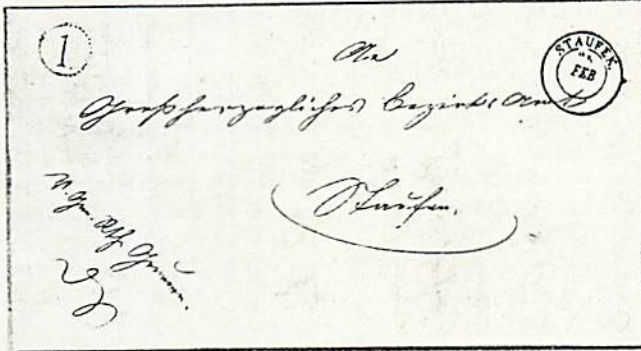 1
STAUFEN.
FEB
An
Großherzogliches Bezirks Amt
Staufen.